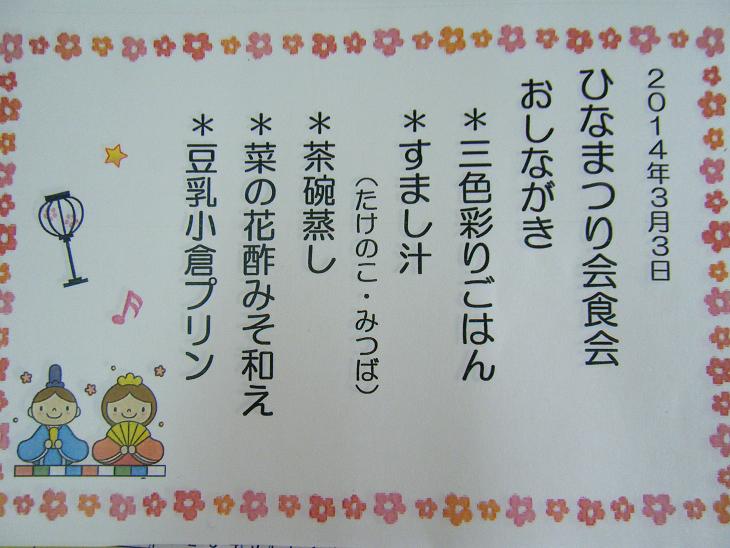 2014年3月3日
ひなまつり会食会
おしながき
＊三色彩りごはん
＊すまし汁
（たけのこ・みつば）
＊茶碗蒸し
＊菜の花酢みそ和え
＊豆乳小倉プリン